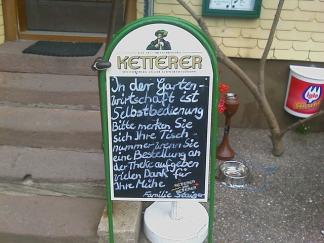 KETTERER
In der Garten-
wirtschaft ist
Selbstbedienung
Bitte merken Sie
sich Ihre Tisch-
nummer wenn Sie
eine Bestellung an
der Theke aufgeben
vielen Dank für
Ihre Mühe
KETTERER
Familie